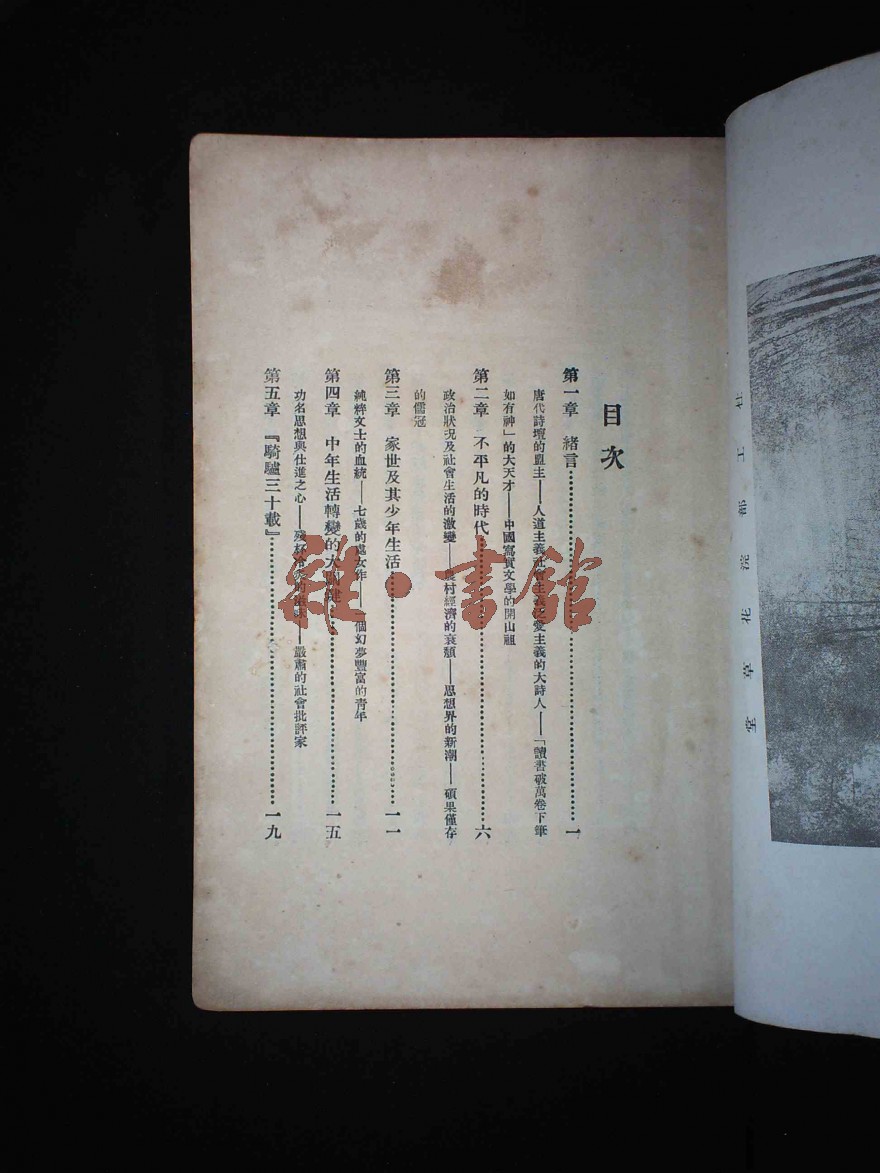 目次
第一章　緒言…………一
唐代詩壇的盟主——人道主義社會主義非愛主義的大詩人——「讀書破萬卷下筆
如有神」的大天才——中國寫實文學的開山祖
第二章　不平凡的時代…………六
政治狀况及社會生活的激變——農村經濟的衰頹——思想界的新潮——碩果僅存
的儒冠
第三章　家世及其少年生活…………一一
純粹文士的血統——七歲的處女作——一個幻夢豐富的靑年
第四章　中年生活轉變的大關鍵…………一五
功名思想與仕進之心——殘杯冷炙的——嚴肅的社會批評家
第五章　『騎驢三十載』…………一九
杜工部浣花草堂
雜·書館